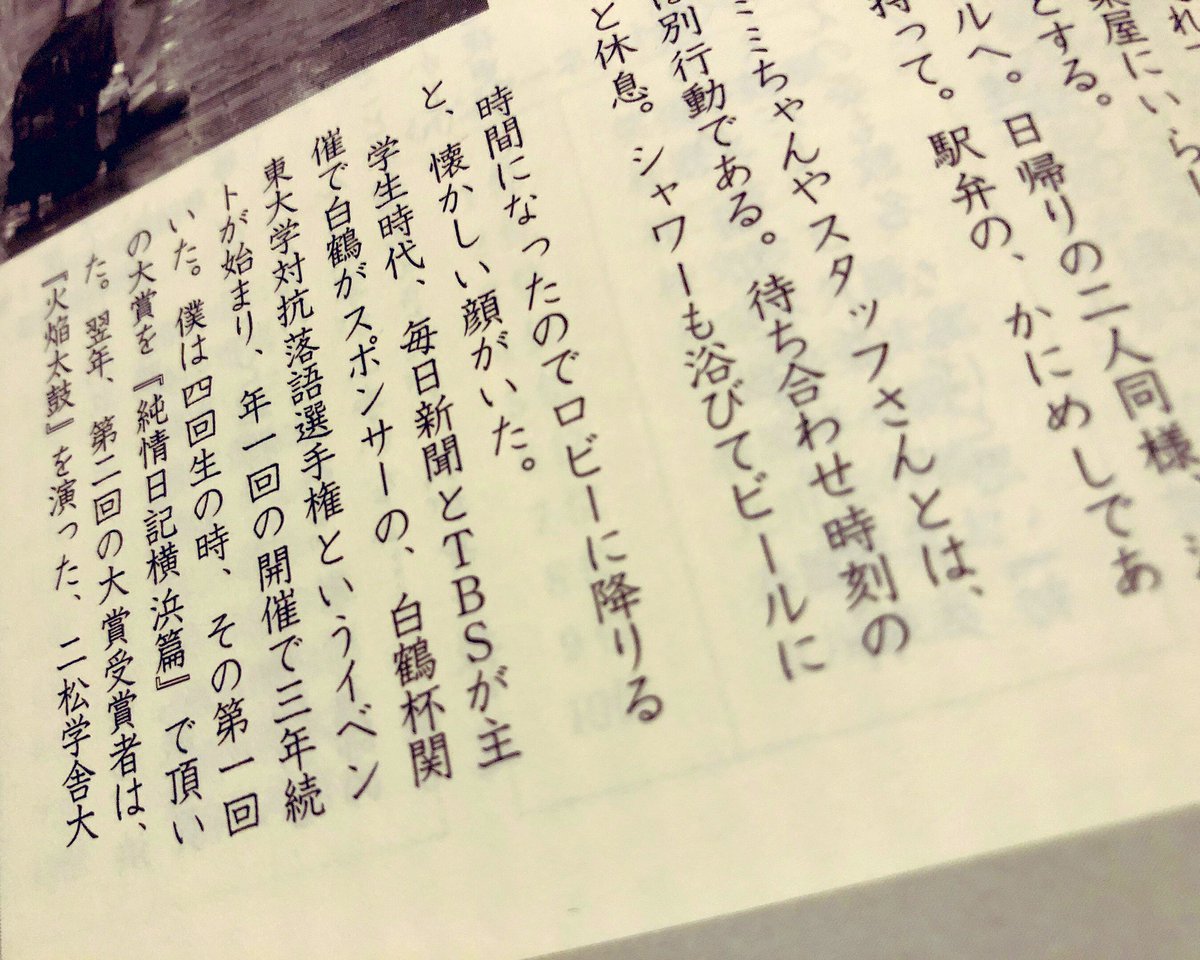 れて
楽屋にいらし
とする。
ルへ。日帰りの二人同様、
持って。駅弁の、かにめしであ
ミミちゃんやスタッフさんとは、
は別行動である。待ち合わせ時刻の
と休息。シャワーも浴びてビールに
時間になったのでロビーに降りる
と、懐かしい顔がいた。
学生時代、毎日新聞とTBSが主
催で白鶴がスポンサーの、白鶴杯関
東大学対抗落語選手権というイベン
トが始まり、年一回の開催で三年続
いた。僕は四回生の時、その第一回
の大賞を『純情日記横浜篇』で頂い
た。翌年、第二回の大賞受賞者は、
『火焔太鼓』を演った、二松学舎大